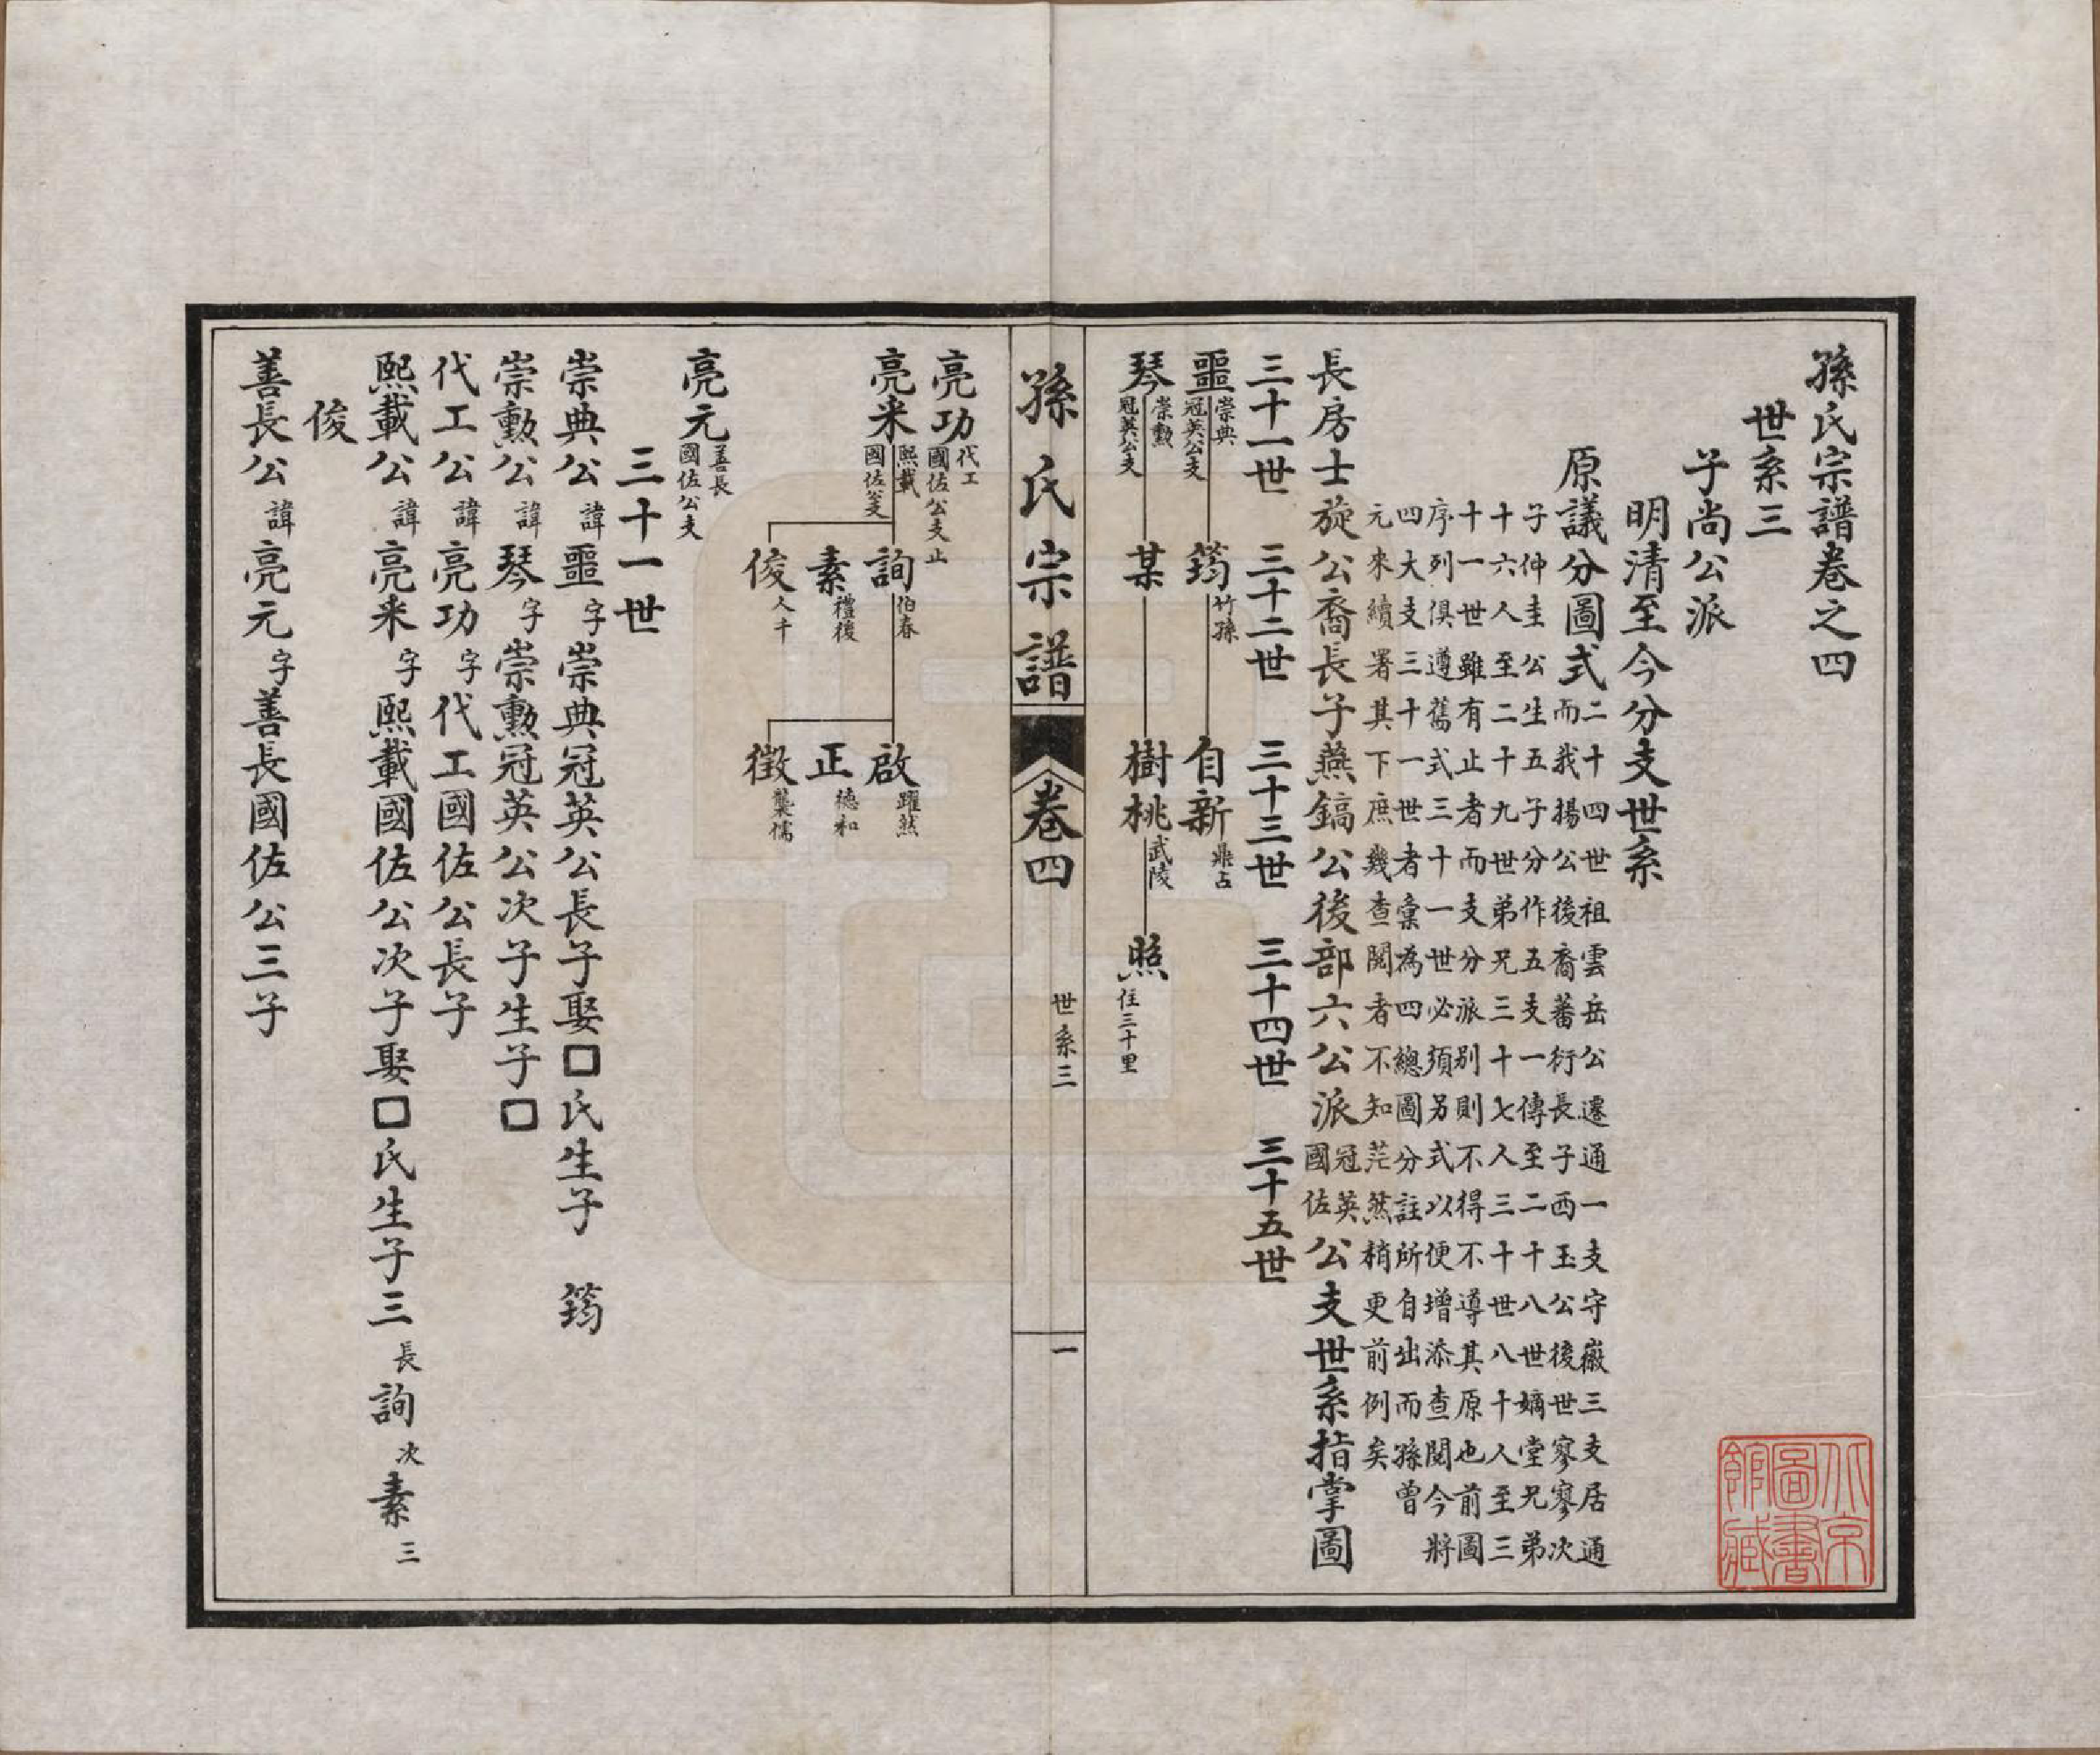 孫氏宗譜卷之四
世系三
子尚公派
明清至今分支世系
原議分圖式
二十四世祖雲岳公遷通一支守嶶三支居通
而我揚公後裔蕃衍長子西玉公後世寥寥次
子仲圭公生五子分作五支一傳至二十八世嫡堂兄弟
十六人至二十九世弟兄三十七人三十世八十人至三
十一世雖有止者而支分派别則不得不遵其原也前圖
序列俱遵舊式三十一世必須另式以便增添查閱今將
四大支三十一世者彙為四總圖分註所自出而孫曾
元來續署其下庶幾查閱者不知茫然稍更前例矣
長房士旋公裔長子燕鎬公後部六公派冠英國佐公支世系指掌圖
三十一世 三十二世 三十三世 三十四世 三十五世
噩 崇典 冠英公支 筠 竹孫 自新 鼎占
琴 崇勳 冠英公支 某 樹桃 武陵 照 住三十里
孫氏宗譜 卷四 世系三 一
亮功 代工 國佐公支 止
亮采 熙載 國佐公支 詢 伯春 啟 躍然
素 禮後 正 德和
俊 人千 徵 襲儒
亮元 善長 國佐公支
三十一世
崇典公諱噩字崇典冠英公長子娶□氏生子 筠
崇勳公諱琴字崇勳冠英公次子生子□
代工公諱亮功字代工國佐公長子
熙載公諱亮采字熙載國佐公次子娶□氏生子三長詢次素三
俊
善長公諱亮元字善長國佐公三子
北京圖書館藏